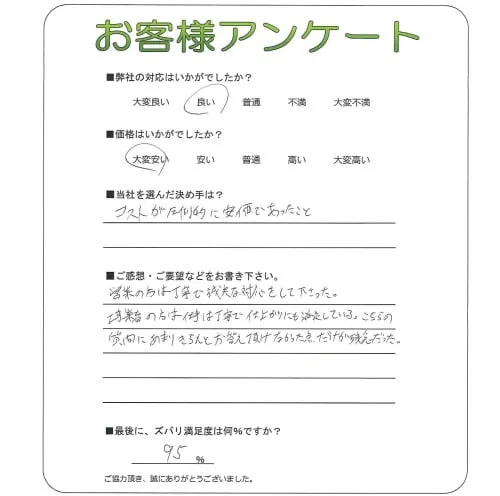 お客様アンケート
■弊社の対応はいかがでしたか？
大変良い 良い 普通 不満 大変不満
■価格はいかがでしたか？
大変安い 安い 普通 高い 大変高い
■当社を選んだ決め手は？
コストが圧倒的に安価であったこと
■ご感想・ご要望などをお書き下さい。
営業の方は丁寧で誠実な対応をして下さった。
の方は仕事は丁寧で仕上がりにも満足している。こちらの
質問にあまりきちんとお答え頂けなかった点だけが残念だった。
■最後に、ズバリ満足度は何%ですか？
95 %
ご協力頂き、誠にありがとうございました。